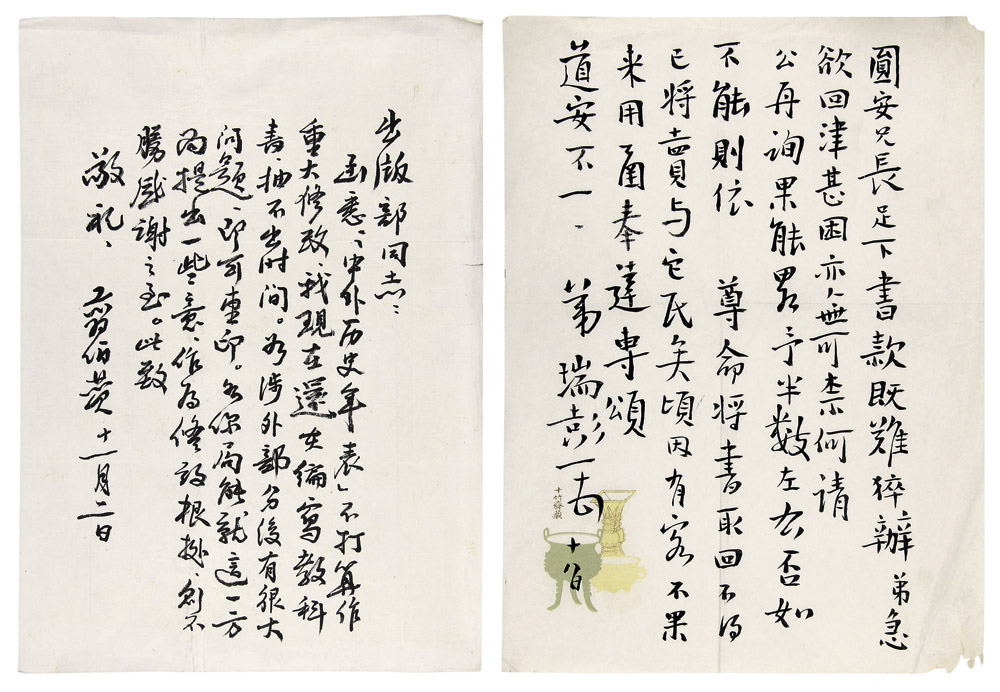 出版部同志：
函悉、「中外历史年表」不打算作
重大修改、我現在還在编寫教科
書、抽不出时间。如涉外部分没有很大
问题、即可重印。如你局能就這一方
面提出一些意、作为修改根据、則不
勝感謝之至。此致
敬礼、
翦伯赞 十一月二日
圓安兄長足下書款既難猝辦弟急
欲回津甚困亦無可奈何請
公再詢果能畧予半數左右否如
不能則依 尊命將書取回不得
已將賣与它氏矣頃因有客不果
来用甬奉達專頌
道安不一、 弟瑞彭 十八日
十竹齋藏